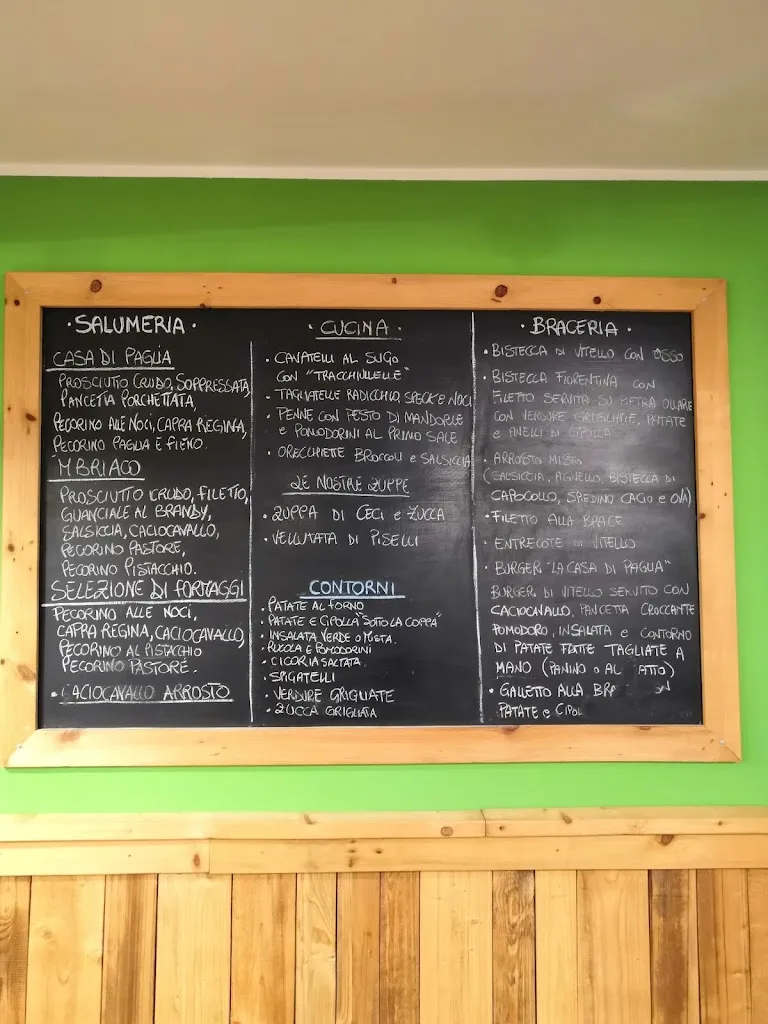 · SALUMERIA ·
CASA DI PAGLIA
PROSCIUTTO CRUDO, SOPPRESSATA,
PANCETTA PORCHETTATA,
PECORINO ALLE NOCI, CAPRA REGINA,
PECORINO PAGLIA E FIENO.
MBRIACO
PROSCIUTTO CRUDO, FILETTO,
GUANCIALE AL BRANDY,
SALSICCIA, CACIOCAVALLO,
PECORINO PASTORE,
PECORINO PISTACCHIO.
SELEZIONE DI FORMAGGI
PECORINO ALLE NOCI,
CAPRA REGINA, CACIOCAVALLO,
PECORINO AL PISTACCHIO
PECORINO PASTORE.
· CACIOCAVALLO ARROSTO
· CUCINA ·
· CAVATELLI AL SUGO
CON "TRACCHIULELLE"
· TAGLIATELLE RADICCHIO, SPECK E NOCI
· PENNE CON PESTO DI MANDORLE
E POMODORINI AL PRIMO SALE
· ORECCHIETTE BROCCOLI E SALSICCIA
LE NOSTRE ZUPPE
· ZUPPA DI CECI E ZUCCA
· VELLUTATA DI PISELLI
CONTORNI
· PATATE AL FORNO
· PATATE E CIPOLLA "SOTTO LA COPPA"
· INSALATA VERDE O MISTA.
· RUCOLA E POMODORINI
· CICORIA SALTATA.
· SPIGATELLI
· VERDURE GRIGLIATE
· ZUCCA GRIGLIATA
· BRACERIA ·
· BISTECCA DI VITELLO CON OSSO
· BISTECCA FIORENTINA CON
FILETTO SERVITA SU PIETRA OLLARE
CON VERDURE GRIGLIATE, PATATE
E ANELLI DI CIPOLLA
· ARROSTO MISTO
(SALSICCIA, AGNELLO, BISTECCA DI
CAPOCOLLO, SPEDINO CACIO E OVA)
· FILETTO ALLA BRACE
· ENTRECOTE DI VITELLO
· BURGER "LA CASA DI PAGLIA"
BURGER DI VITELLO SERVITO CON
CACIOCAVALLO, PANCETTA CROCCANTE
POMODORO, INSALATA E CONTORNO
DI PATATE FRITTE TAGLIATE A
MANO (PANINO O AL ATTO)
· GALLETTO ALLA BR
PATATE E CIPOL